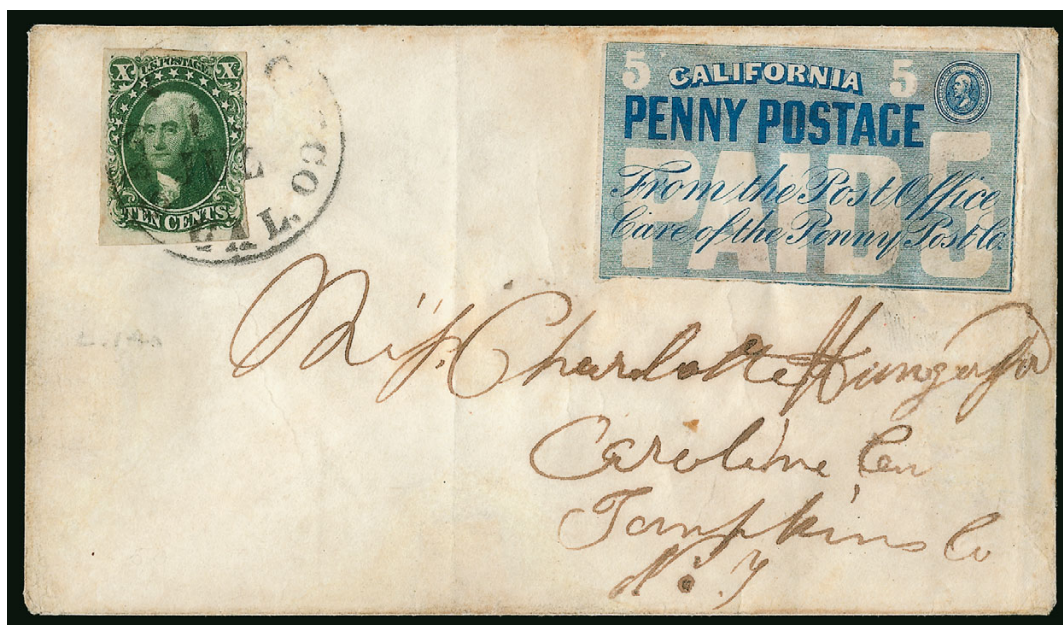 X U.S. POSTAGE X
TEN CENTS
CAL.
5 CALIFORNIA 5
PENNY POSTAGE
PAID 5
From the Post Office
Care of the Penny Post Co.
Miss Charlotte
Caroline Cen
Tompkins Co
N. Y